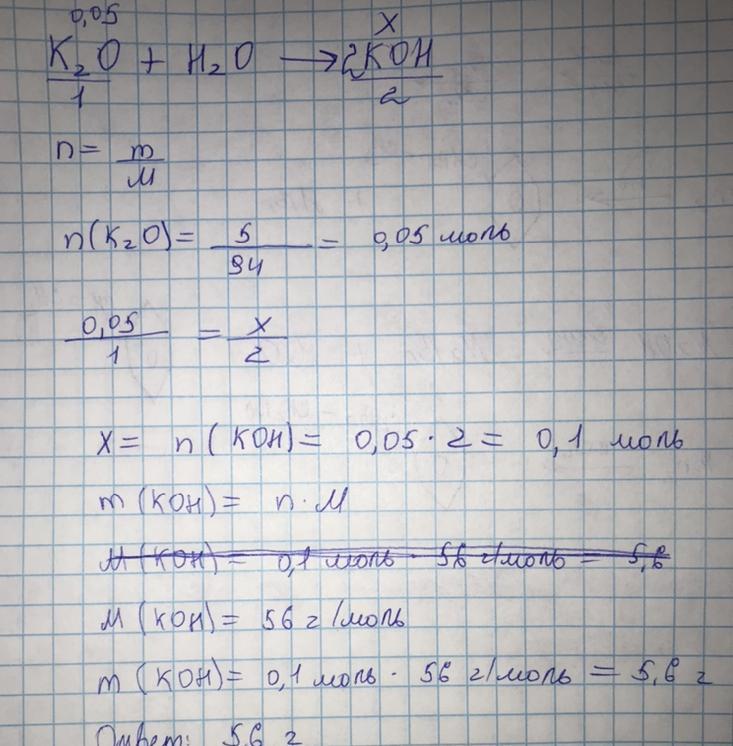 0,05 X
K₂O + H₂O → 2KOH
1 2
n = m/M
n(K₂O) = 5/94 = 0,05 моль
0,05/1 = X/2
X = n(KOH) = 0,05 · 2 = 0,1 моль
m(KOH) = n · M
M(KOH) = 0,1 моль · 56 г/моль = 5,6
M(KOH) = 56 г/моль
m(KOH) = 0,1 моль · 56 г/моль = 5,6 г
Ответ: 5,6 г